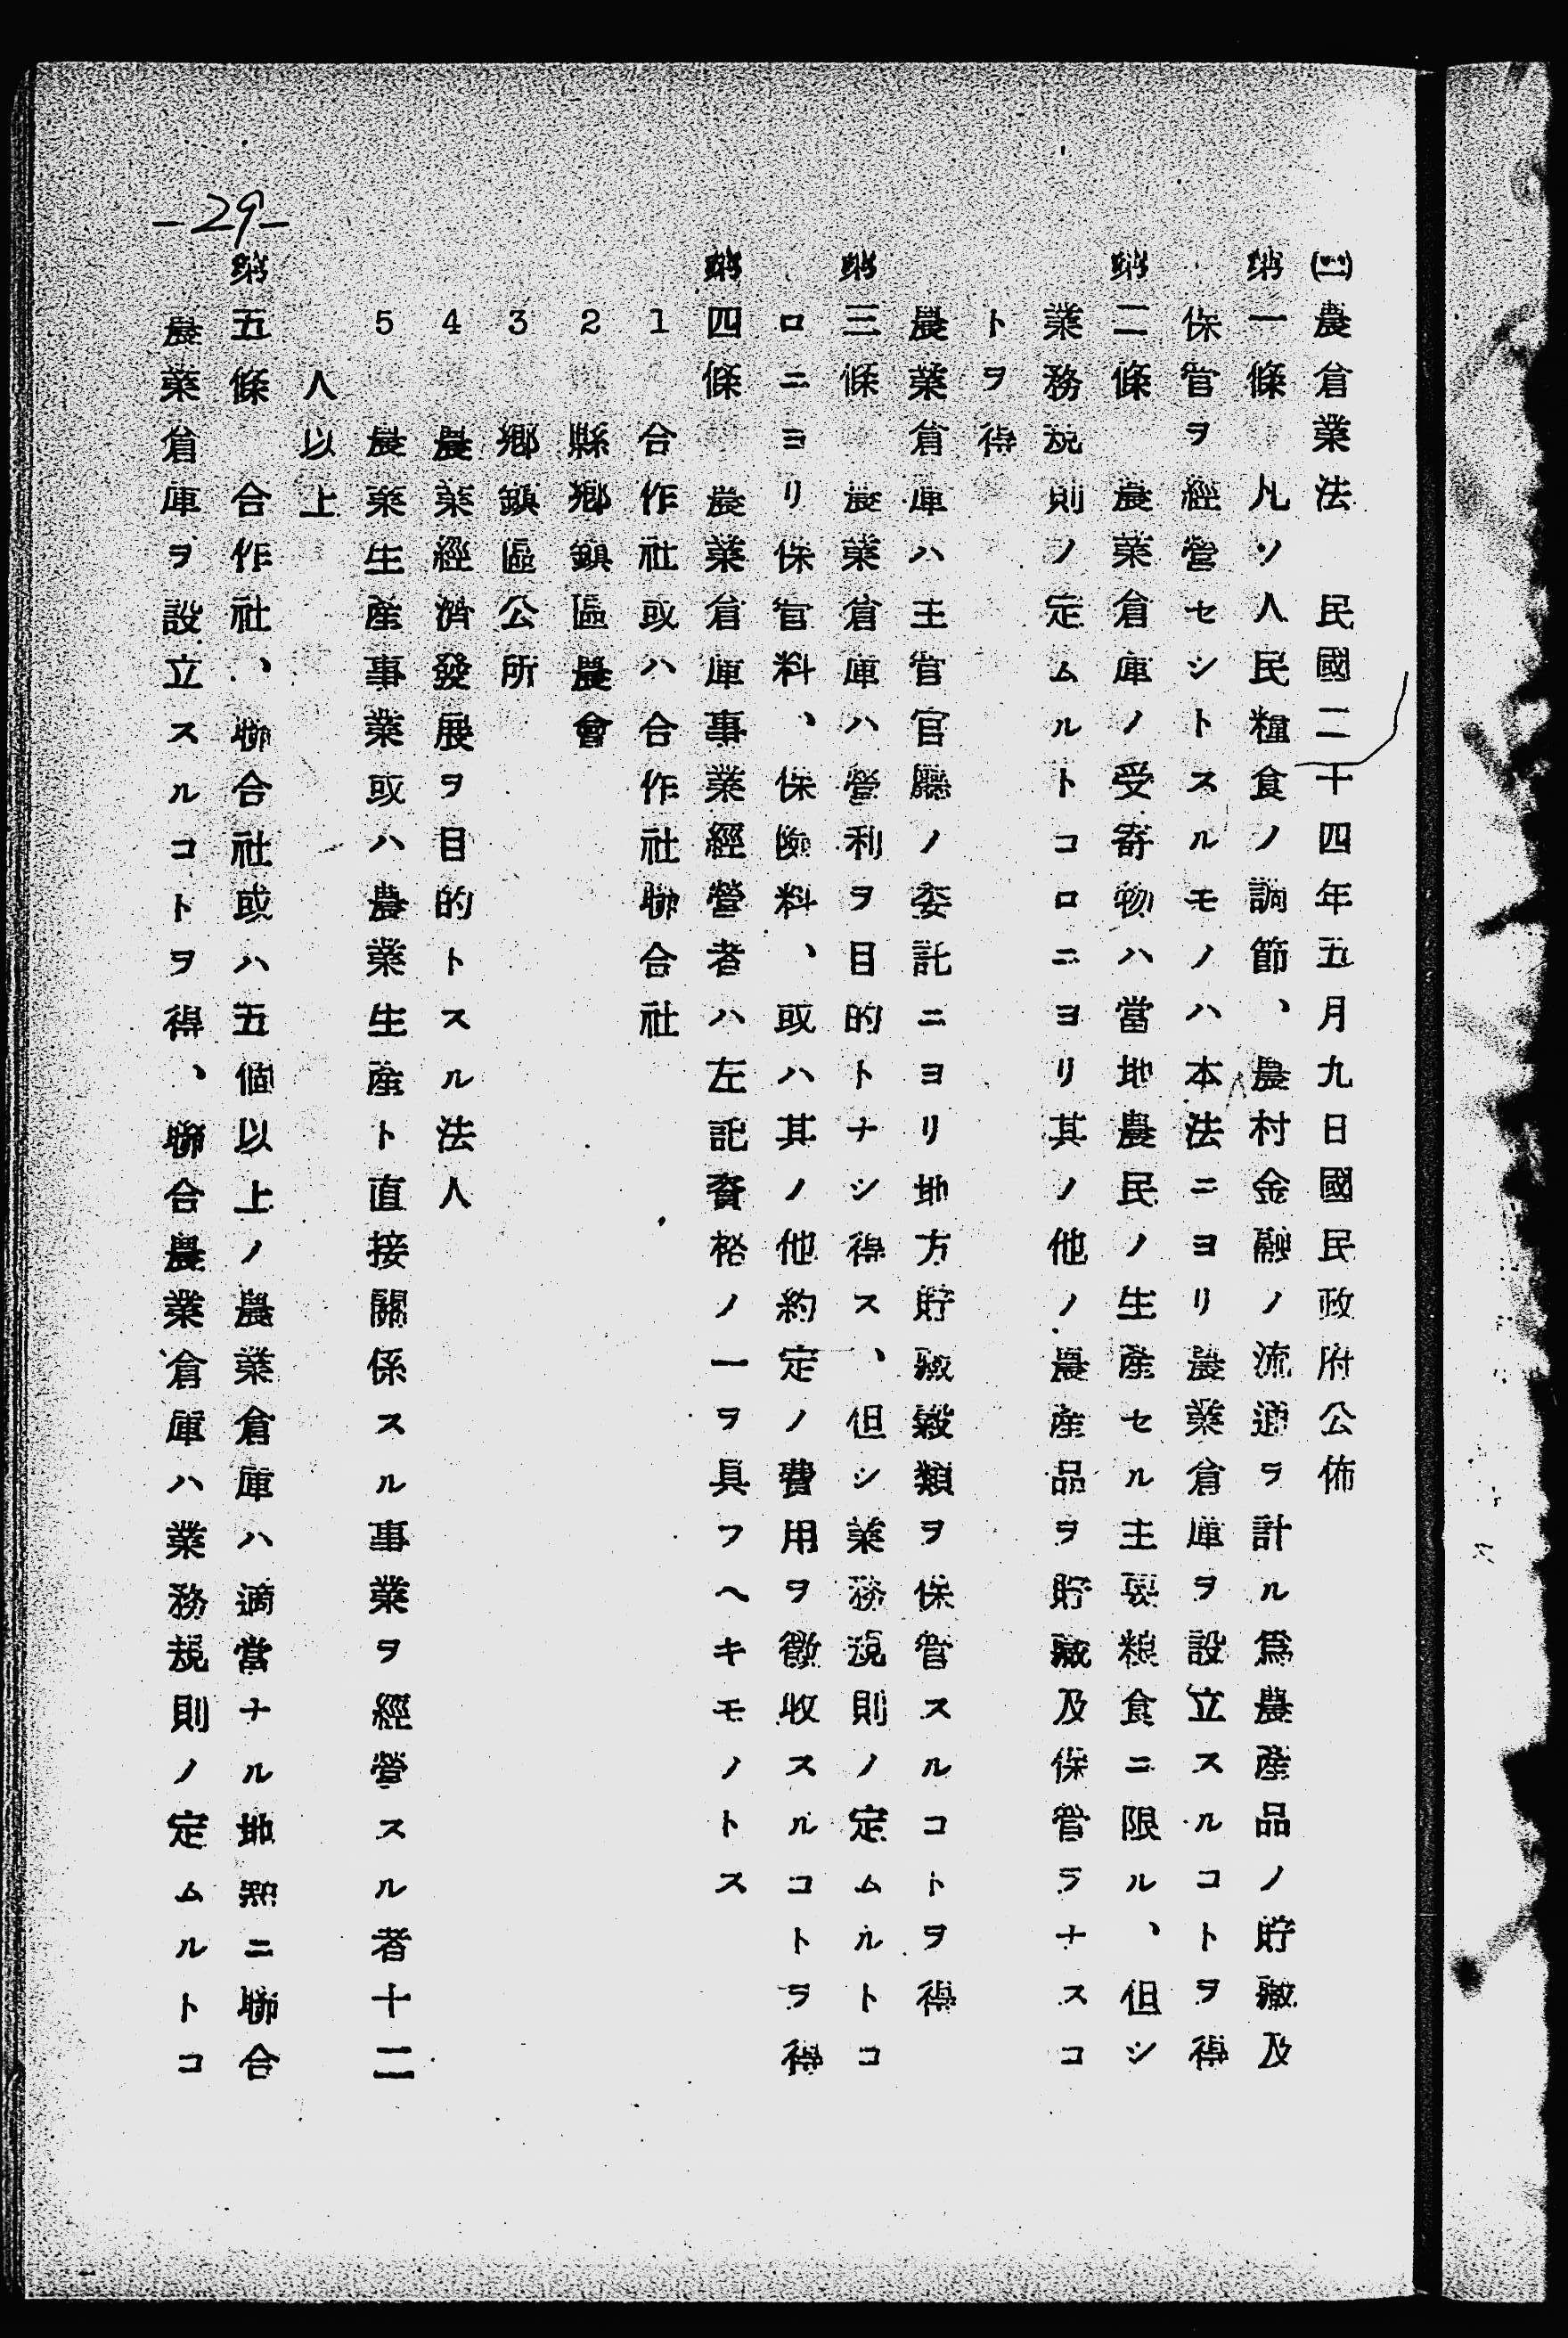 -29-
㈡農倉業法　民國二十四年五月九日國民政府公佈
第一條　凡ソ人民糧食ノ調節、農村金融ノ流通ヲ計ル爲農產品ノ貯藏及
保管ヲ經營セントスルモノハ本法ニヨリ農業倉庫ヲ設立スルコトヲ得
第二條　農業倉庫ノ受寄物ハ當地農民ノ生產セル主要粮食ニ限ル、但シ
業務規則ノ定ムルトコロニヨリ其ノ他ノ農產品ヲ貯藏及保管ヲナスコ
トヲ得
農業倉庫ハ主官官廳ノ委託ニヨリ地方貯藏穀類ヲ保管スルコトヲ得
第三條　農業倉庫ハ營利ヲ目的トナシ得ス、但シ業務規則ノ定ムルトコ
ロニヨリ保官料、保險料、或ハ其ノ他約定ノ費用ヲ徵收スルコトヲ得
第四條　農業倉庫事業經營者ハ左記資格ノ一ヲ具フヘキモノトス
1　合作社或ハ合作社聯合社
2　縣鄉鎮區農會
3　鄉鎮區公所
4　農業經濟發展ヲ目的トスル法人
5　農業生產事業或ハ農業生產ト直接關係スル事業ヲ經營スル者十二
人以上
第五條　合作社、聯合社或ハ五個以上ノ農業倉庫ハ適當ナル地點ニ聯合
農業倉庫ヲ設立スルコトヲ得、聯合農業倉庫ハ業務規則ノ定ムルトコ